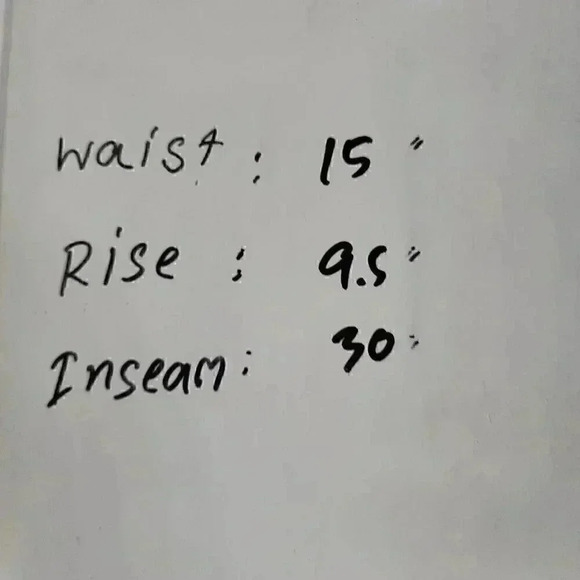 Waist : 15 "
Rise : 9.5 "
Inseam : 30 "